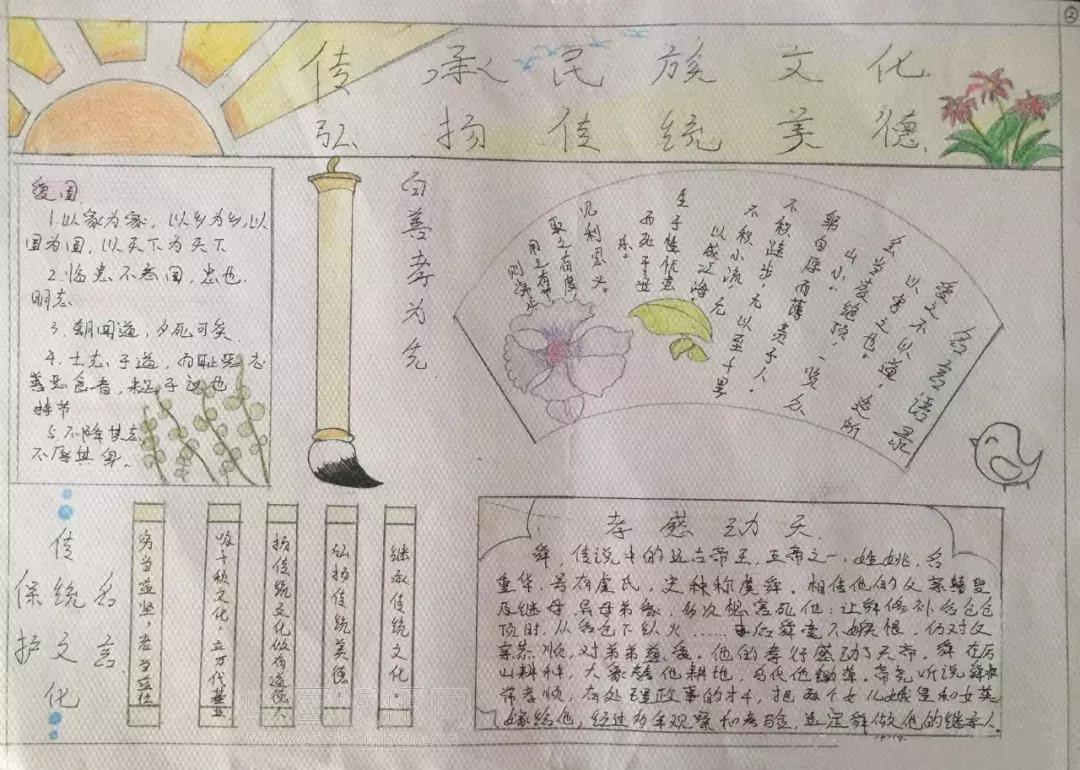 ②
传承民族文化
弘扬传统美德
爱国
1.以家为家,以乡为乡,以
国为国,以天下为天下
2.临患不忘国,忠也.
明志
3.朝闻道,夕死可矣
4.士志于道,而耻恶衣
恶食者,
持节
5.不降其志,
不辱其身。
百善孝为先
名言语录
爱之不以道,适所
以害之也。
会当凌绝顶,一览众
山小。
躬自厚而薄责于人。
不积跬步,无以至千里
不积小流,无
以成江海。
生于忧患
而死于安
乐。
见利思义。
取之有度
用之有节
则常足
传统文化
保护
名言
穷当益坚,老当益壮
咏千秋文化,立万代基业
扬传统文化做有道德人
弘扬传统美德,
继承传统文化。
孝感动天
舜,传说中的远古帝王,五帝之一,姓姚,名
重华,号有虞氏,史称虞舜。相传他的父亲瞽叟
及继母、异母弟象,多次想害死他:让舜修补谷仓仓
顶时,从谷仓下纵火……事后舜毫不嫉恨,仍对父
亲恭顺,对弟弟慈爱。他的孝行感动了天帝。舜在历
山耕种,大象替他耕地,鸟代他锄草。帝尧听说舜非
常孝顺,有处理政事的才干,把两个女儿娥皇和女英
嫁给他,经过多年观察和考验,选定舜做他的继承人。